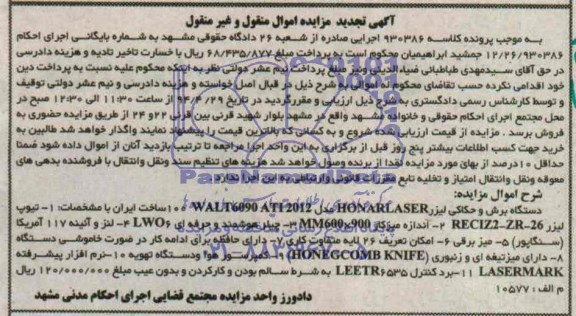 آگهی تجدید مزایده اموال منقول و غیر منقول
به موجب پرونده کلاسه ۹۳۰۳۸۶ اجرایی صادره از شعبه ۲۶ دادگاه حقوقی مشهد به شماره بایگانی اجرای احکام
۱۲/۲۶/۹۳۰۳۸۶ جمشید ابراهیمیان محکوم است به پرداخت مبلغ ۶۸/۴۳۵/۸۷۷ ریال با خسارت تاخیر تادیه و هزینه دادرسی
در حق آقای سیدمهدی طباطبائی ضیاءالدینی ونیز مبلغ پرداخت نیم عشر دولتی نظر به اینکه محکوم علیه نسبت به پرداخت دین
خود اقدامی نکرده حسب تقاضای محکوم له اموالی به شرح ذیل در قبال اصل خواسته و هزینه دادرسی و نیم عشر دولتی توقیف
و توسط کارشناس رسمی دادگستری به شرح ذیل ارزیابی و مقررگردید در تاریخ ۹۴/۴/۲۹ از ساعت ۱۱:۳۰ الی ۱۲:۳۰ صبح در
محل مجتمع اجرای احکام حقوقی و خانواده مشهد واقع در مشهد بلوار شهید قرنی بین قرنی ۲۲و ۲۴ از طریق مزایده حضوری به
فروش برسد . مزایده از قیمت ارزیابی شده شروع و به کسانی که بالاترین قیمت را پیشنهاد نمایند واگذار خواهد شد طالبین به
خرید جهت کسب اطلاعات بیشتر پنج روز قبل از برگزاری به این واحد اجرا مراجعه تا ترتیب بازدید آنان از اموال داده شود ضمنا
حداقل ۱۰درصد از بهای مورد مزایده نقدا از برنده وصول خواهد شد هزینه های تنظیم سند ونقل وانتقال با فروشنده بدهی های
معوقه ونقل وانتقال امتیاز و تخلیه تابع مقررات قانونی وارتباطی به این اجرا ندارد
شرح اموال مزایده:
دستگاه برش و حکاکی لیزر HONARLASER مدل WALIT6090 ATI 2012 ساخت ایران با مشخصات: ۱- تیوپ
لیزر RECIZ2-ZR-26 ۲- اندازه میزکار MM600x900 ۳- چیلر هوشمند و حرفه ای LWO6 ۴- لنز و آئینه ۱۱۷ آمریکا
(سنگاپور) ۵- میز برقی ۶- امکان تعریف ۲۶ لایه متفاوت کاری ۷- دارای حافظه برای ادامه کار در صورت خاموشی دستگاه
۸- دارای میزتیغه ای و زنبوری (HONEGCOMB KNIFE) ۹- کمپرسور هوا ودستگاه تهویه ۱۰-نرم افزار پیشرفته
LASERMARK ۱۱-برد کنترل LEETR۶۵۳۵ به شرط سالم بودن و کارکردن و بدون عیب مبلغ ۱۲۰/۰۰۰/۰۰۰ ریال
م الف: ۱۰۵۷۷
دادورز واحد مزایده مجتمع قضایی اجرای احکام مدنی مشهد